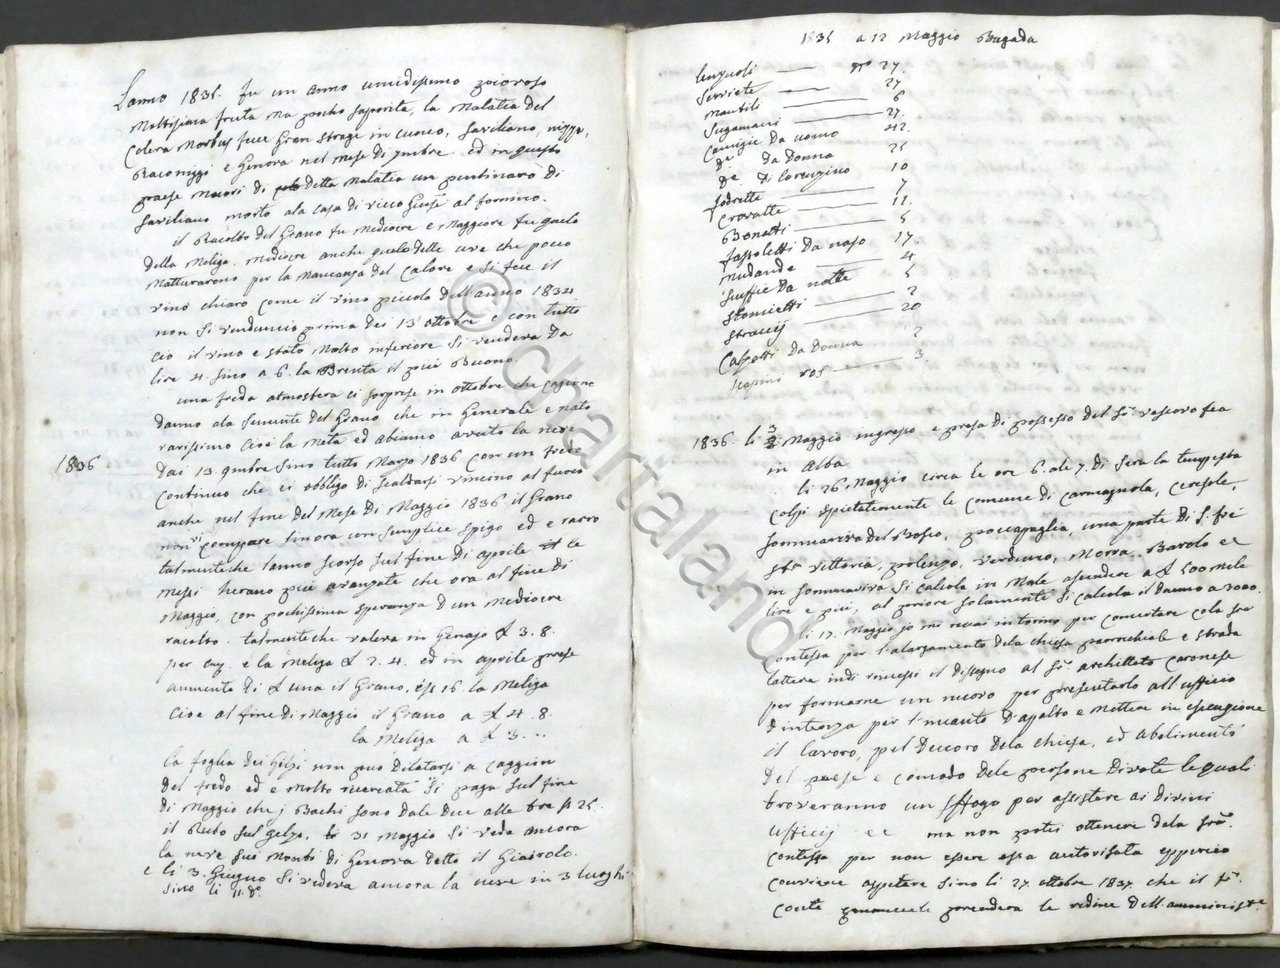 L'anno 1835. fu un anno umidissimo piovoso
Moltissima fruta ma pocho saporita, la Malatia del
Colera Morbus fece Gran strage in Cuneo, Saviliano, nizza,
Raconiggi e Genova nel Mese di 7mbre. ed in questo
paese Morì di detta Malatia un pentinaro di
Saviliano morto ala Casa di vicco Giuse al fornino.
il Racolto del Grano fu Mediocre e Maggiore fu quelo
della Meliga. Mediocre anche quelo delle uve che pocco
Matturarono per la Mancanza del Calore e si fece il
vino chiaro Come il vino piccolo dell'anno 1832
non si vendemiò prima dei 13 ottobre e con tutto
ciò il vino e stato Molto inferiore si vendeva da
lire 4. sino a 6. la Brenta il più Buono.
una freda atmosfera ci sorprese in ottobre che cagionò
danno ala semente del Grano che in Generale e nato
rarissimo cioè la Metà ed abiamo avuto la neve
1836
dai 13. 9mbre sino tutto Marzo 1836 con un fredo
Continuo che ci obbligò di Scaldarsi vincino al fuoco
anche nel fine del Mese di Maggio 1836 il Grano
non vi compare sinora un semplice spigo ed e rarro
talmente che l'anno scorso sul fine di aprile le
messi herano più avanzate che ora al fine di
Maggio, con pochissima speranza d'un Mediocre
racolto. talmente che valeva in Genajo £ 3. 8.
per emi. e la Meliga £ 2. 4. ed in aprile prese
aumento di £ una il Grano, e s 16. la Meliga
Cioè al fine di Maggio il Grano a £ 4. 8.
la Meliga a £ 3. ...
la foglia dei Gelsi non può dilatarsi a caggion
del fredo ed e molto ricercata si paga sul fine
di Maggio che j Bachi sono dale due alle tre s 25.
il Rubo sul gelzo, 31 Maggio si veda ancora
la neve sui Monti di Genova detto il Giarolo.
e li 3. Giugno si vedeva ancora la neve in 3 luoghi
sino li 11. do.
1835 a 12 Maggio Bugada
lenzuoli — no 27.
Serviete — 27
Mantili — 6
Sugamani — 27.
Camizie da uomo 42.
de da Donna 25
de di 10
fodrette — 7
Cravatte — 11.
Bonetti — 5
fassoletti da naso 17.
mudande — 4
Scuffie da notte 5
— 2
Stracij — 20
da Donna 2
— 3
1836. li 3 Maggio ingresso e presa di possesso del Sr. vescovo fea
in Alba
li 26 Maggio circa le ore 6. ale 7. di sera la tempesta
Colpì spietatemente le Comune di Carmagnola, Ceresole,
Sommariva del Bosco, poccapaglia, una parte di
Sta. vittoria, pollenzo, verduno, Morra, Barolo ec
in Sommariva si calcola in Male ascendere a £ 500 mile
lire e più, al priore solamente si calcola il danno a 3000.
li 17. Maggio jo mi recai in torino per concertare cola Sra
Contessa per l'alargamento dela chiesa parrochiale e strada
lattere indi rimessi il disegno al Sr. architteto Caronese
per formarne un nuovo per presentarlo all'ufficio
d'intenza per l'incanto d'apalto e mettere in esecuzione
il lavoro, pel decoro dela chiesa, ed abelimento
del paese e comodo dele persone divote le quali
troveranno un sffogo per assistere ai divini
ufficij ec ma non potei ottenere dela Sra.
contessa per non essere essa autorisata epperciò
conviene aspetare sino li 27. ottobre 1837. che il Sr.
Conte prenderà le redine dell'amminist.e